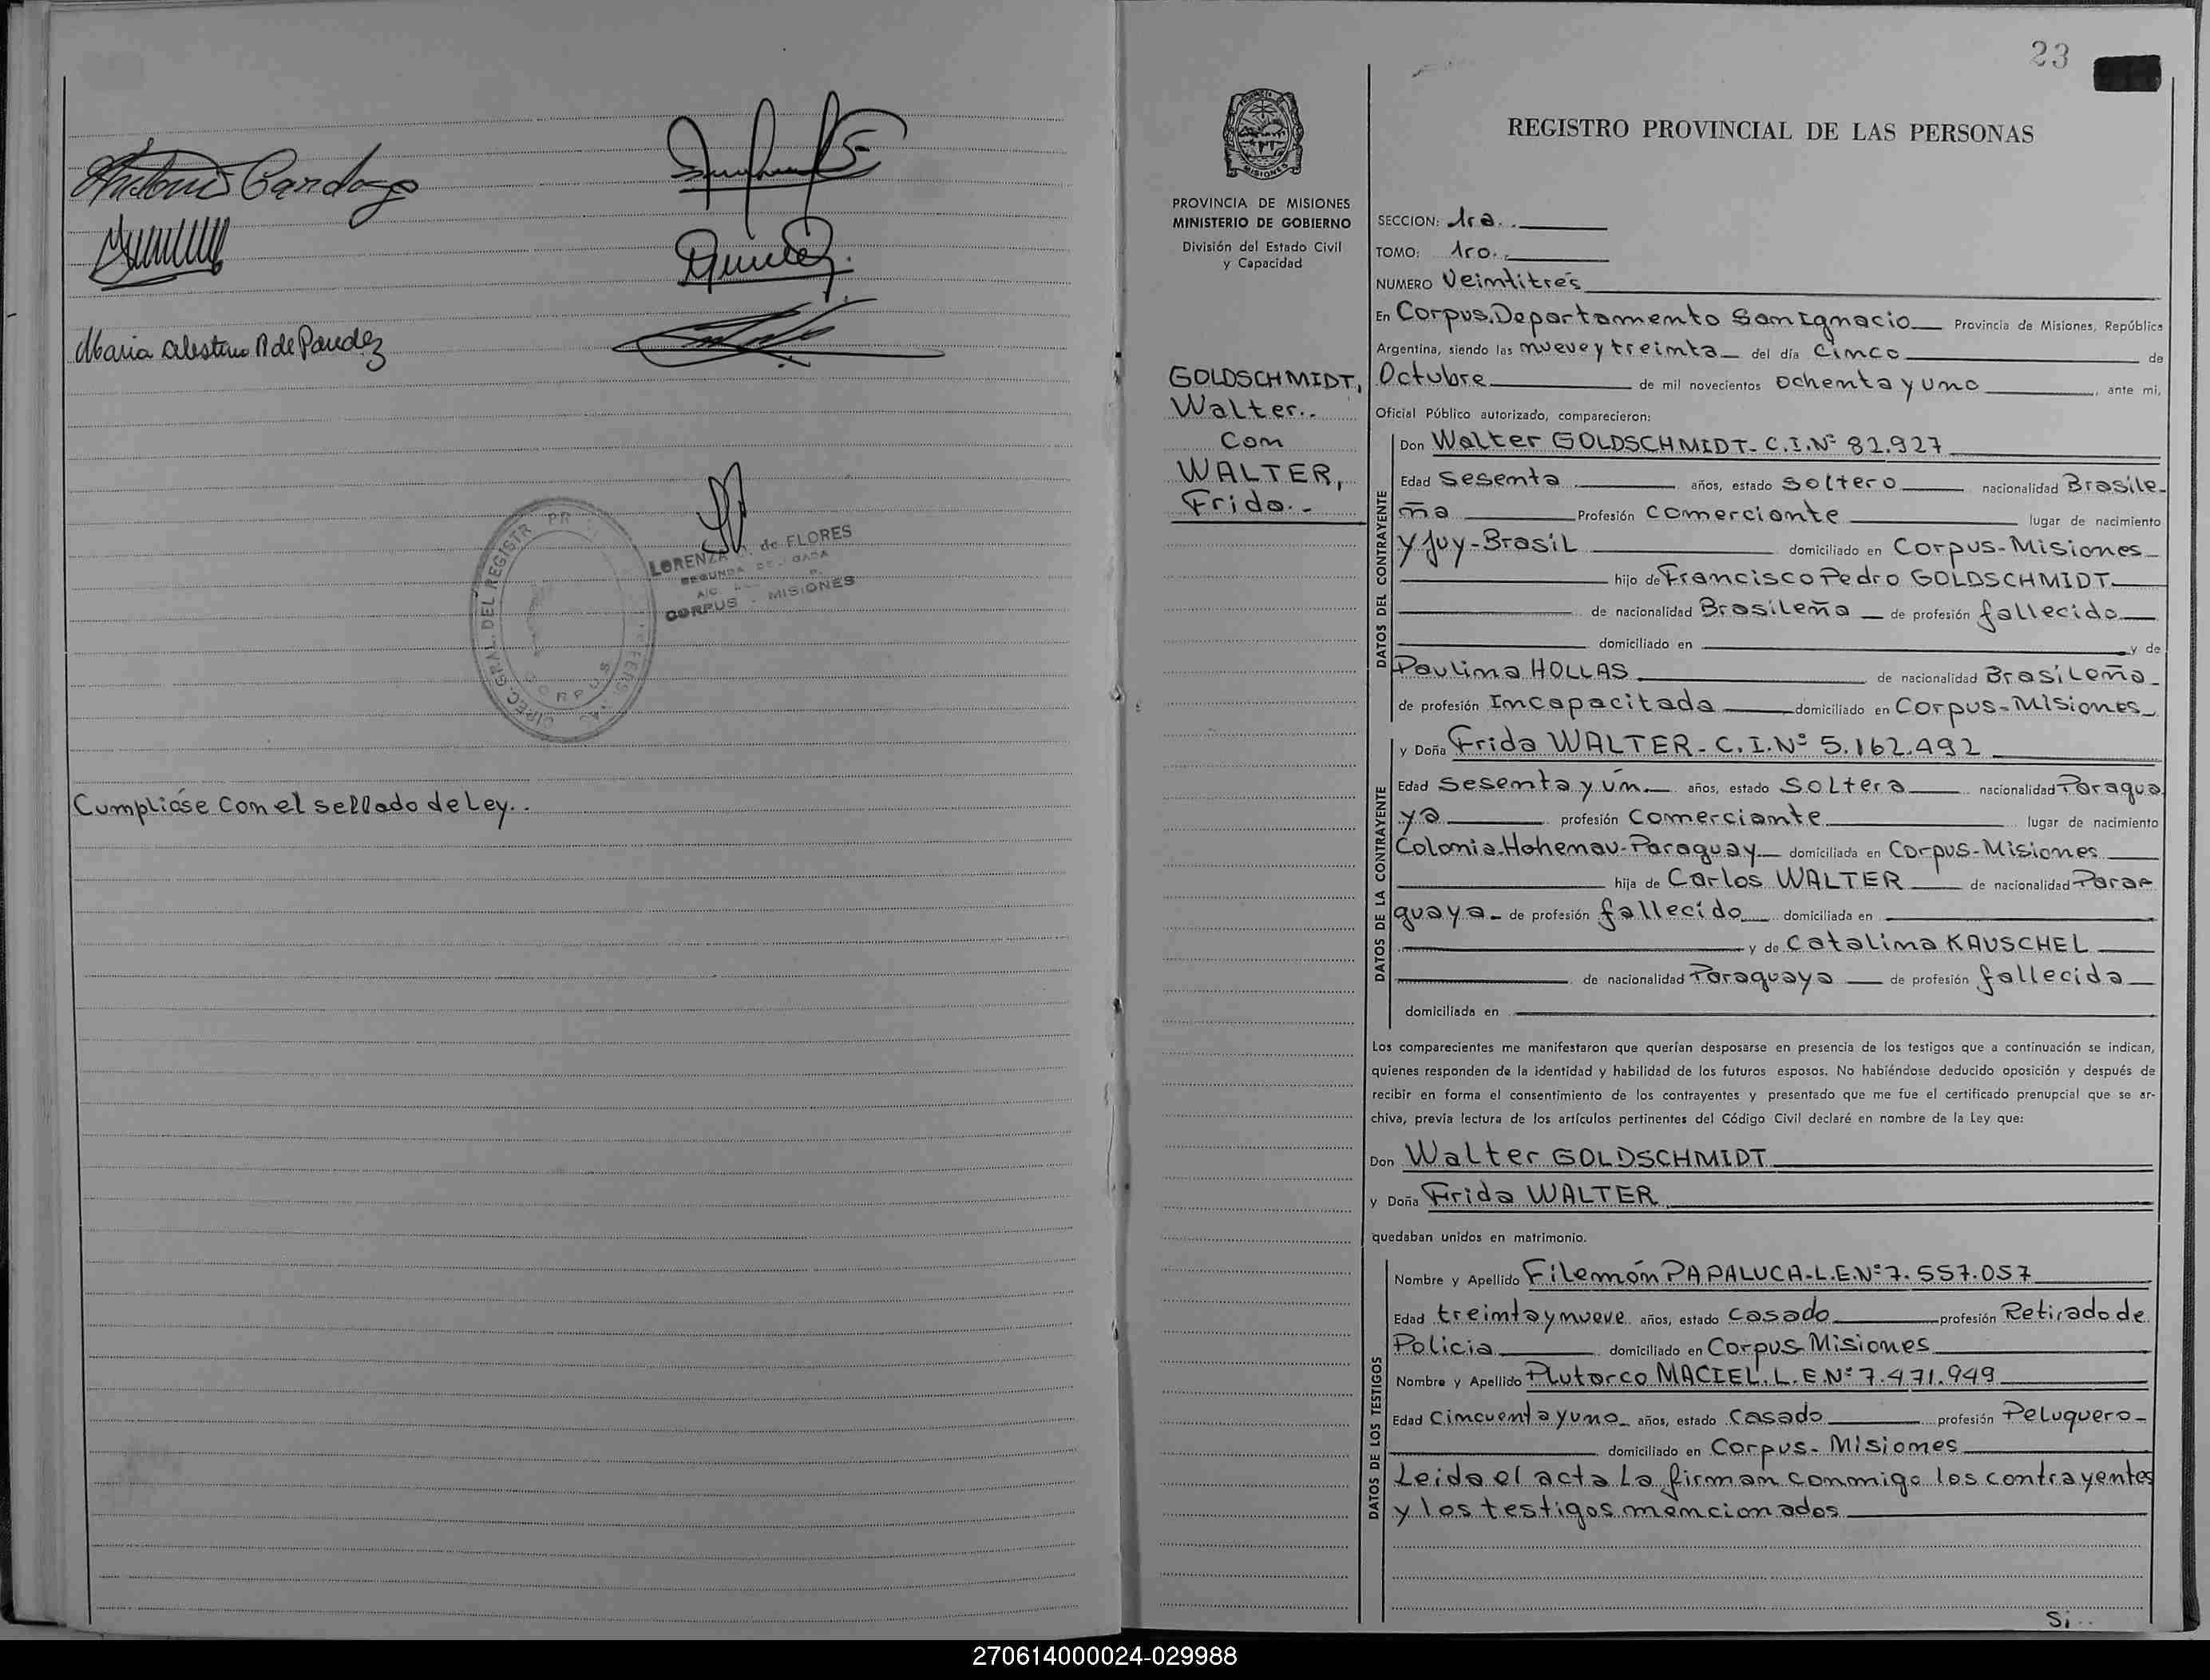 Antonio Cardozo
Maria Celestina R de Paudez
LORENZA de FLORES
CORPUS - MISIONES
Cumplióse con el sellado de Ley..
23
REGISTRO PROVINCIAL DE LAS PERSONAS
MISIONES
PROVINCIA DE MISIONES
MINISTERIO DE GOBIERNO
División del Estado Civil
y Capacidad
GOLDSCHMIDT,
Walter..
con
WALTER,
Frida.-
SECCION: 1ra.
TOMO: 1ro.
NUMERO Veintitrés
En Corpus, Departamento San Ignacio Provincia de Misiones, República
Argentina, siendo las nueve y treinta del día cinco de
Octubre de mil novecientos ochenta y uno, ante mi,
Oficial Público autorizado, comparecieron:
DATOS DEL CONTRAYENTE
Don Walter GOLDSCHMIDT- C.I.Nº 82.927
Edad sesenta años, estado soltero nacionalidad Brasile-
ña Profesión comerciante lugar de nacimiento
Yjuy-Brasil domiciliado en Corpus-Misiones
hijo de Francisco Pedro GOLDSCHMIDT
de nacionalidad Brasileña de profesión fallecido
domiciliado en y de
Paulina HOLLAS de nacionalidad Brasileña
de profesión Incapacitada domiciliado en Corpus-Misiones
DATOS DE LA CONTRAYENTE
y Doña Frida WALTER- C.I.Nº 5.162.492
Edad sesenta y ún años, estado soltera nacionalidad Paragua
ya profesión comerciante lugar de nacimiento
Colonia Hohenau-Paraguay domiciliada en Corpus-Misiones
hija de Carlos WALTER de nacionalidad Para-
guaya de profesión fallecido domiciliada en
y de Catalina KAUSCHEL
de nacionalidad Paraguaya de profesión fallecida
domiciliada en
Los comparecientes me manifestaron que querían desposarse en presencia de los testigos que a continuación se indican,
quienes responden de la identidad y habilidad de los futuros esposos. No habiéndose deducido oposición y después de
recibir en forma el consentimiento de los contrayentes y presentado que me fue el certificado prenupcial que se ar-
chiva, previa lectura de los artículos pertinentes del Código Civil declaré en nombre de la Ley que:
Don Walter GOLDSCHMIDT
y Doña Frida WALTER
quedaban unidos en matrimonio.
DATOS DE LOS TESTIGOS
Nombre y Apellido Filemón PAPALUCA-L.E.Nº 7.557.057
Edad treinta y nueve años, estado casado profesión Retirado de
Policia domiciliado en Corpus-Misiones
Nombre y Apellido Plutarco MACIEL. L.E Nº 7.471.949
Edad cincuenta y uno años, estado casado profesión Peluquero-
domiciliado en Corpus- Misiones
Leida el acta la firman conmigo los contrayentes
y los testigos mencionados
Si..
270614000024-029988